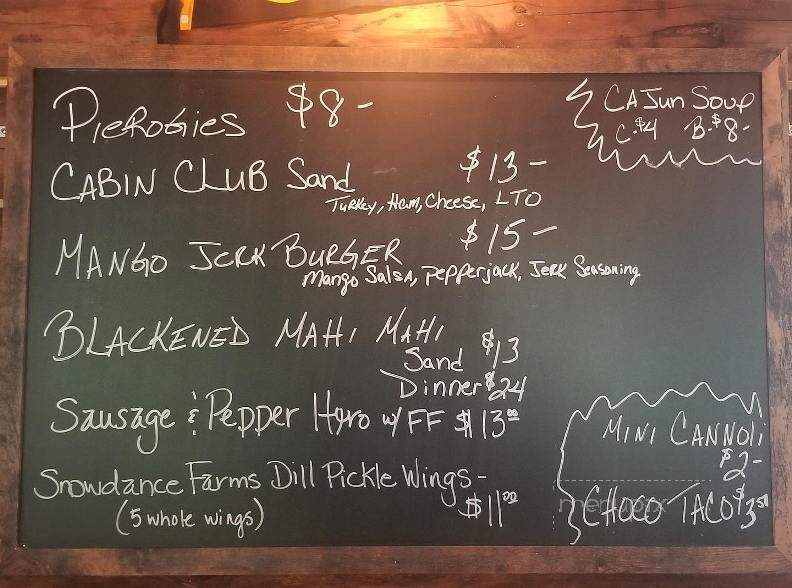 PIEROGIES $8-
CAJun Soup
C.$4 B.$8-
CABIN CLUB Sand $13-
Turkey, Ham, Cheese, LTO
MANGO JERK BURGER $15-
Mango Salsa, pepperjack, Jerk Seasoning
BLACKENED MAHI MAHI
Sand $13
Dinner $24
Sausage & Pepper Hyro w/ FF $13.00
Snowdance Farms Dill Pickle Wings-
(5 whole wings) $11.00
MINI CANNOLI
$2-
CHOCO TACO $3.50
menupix